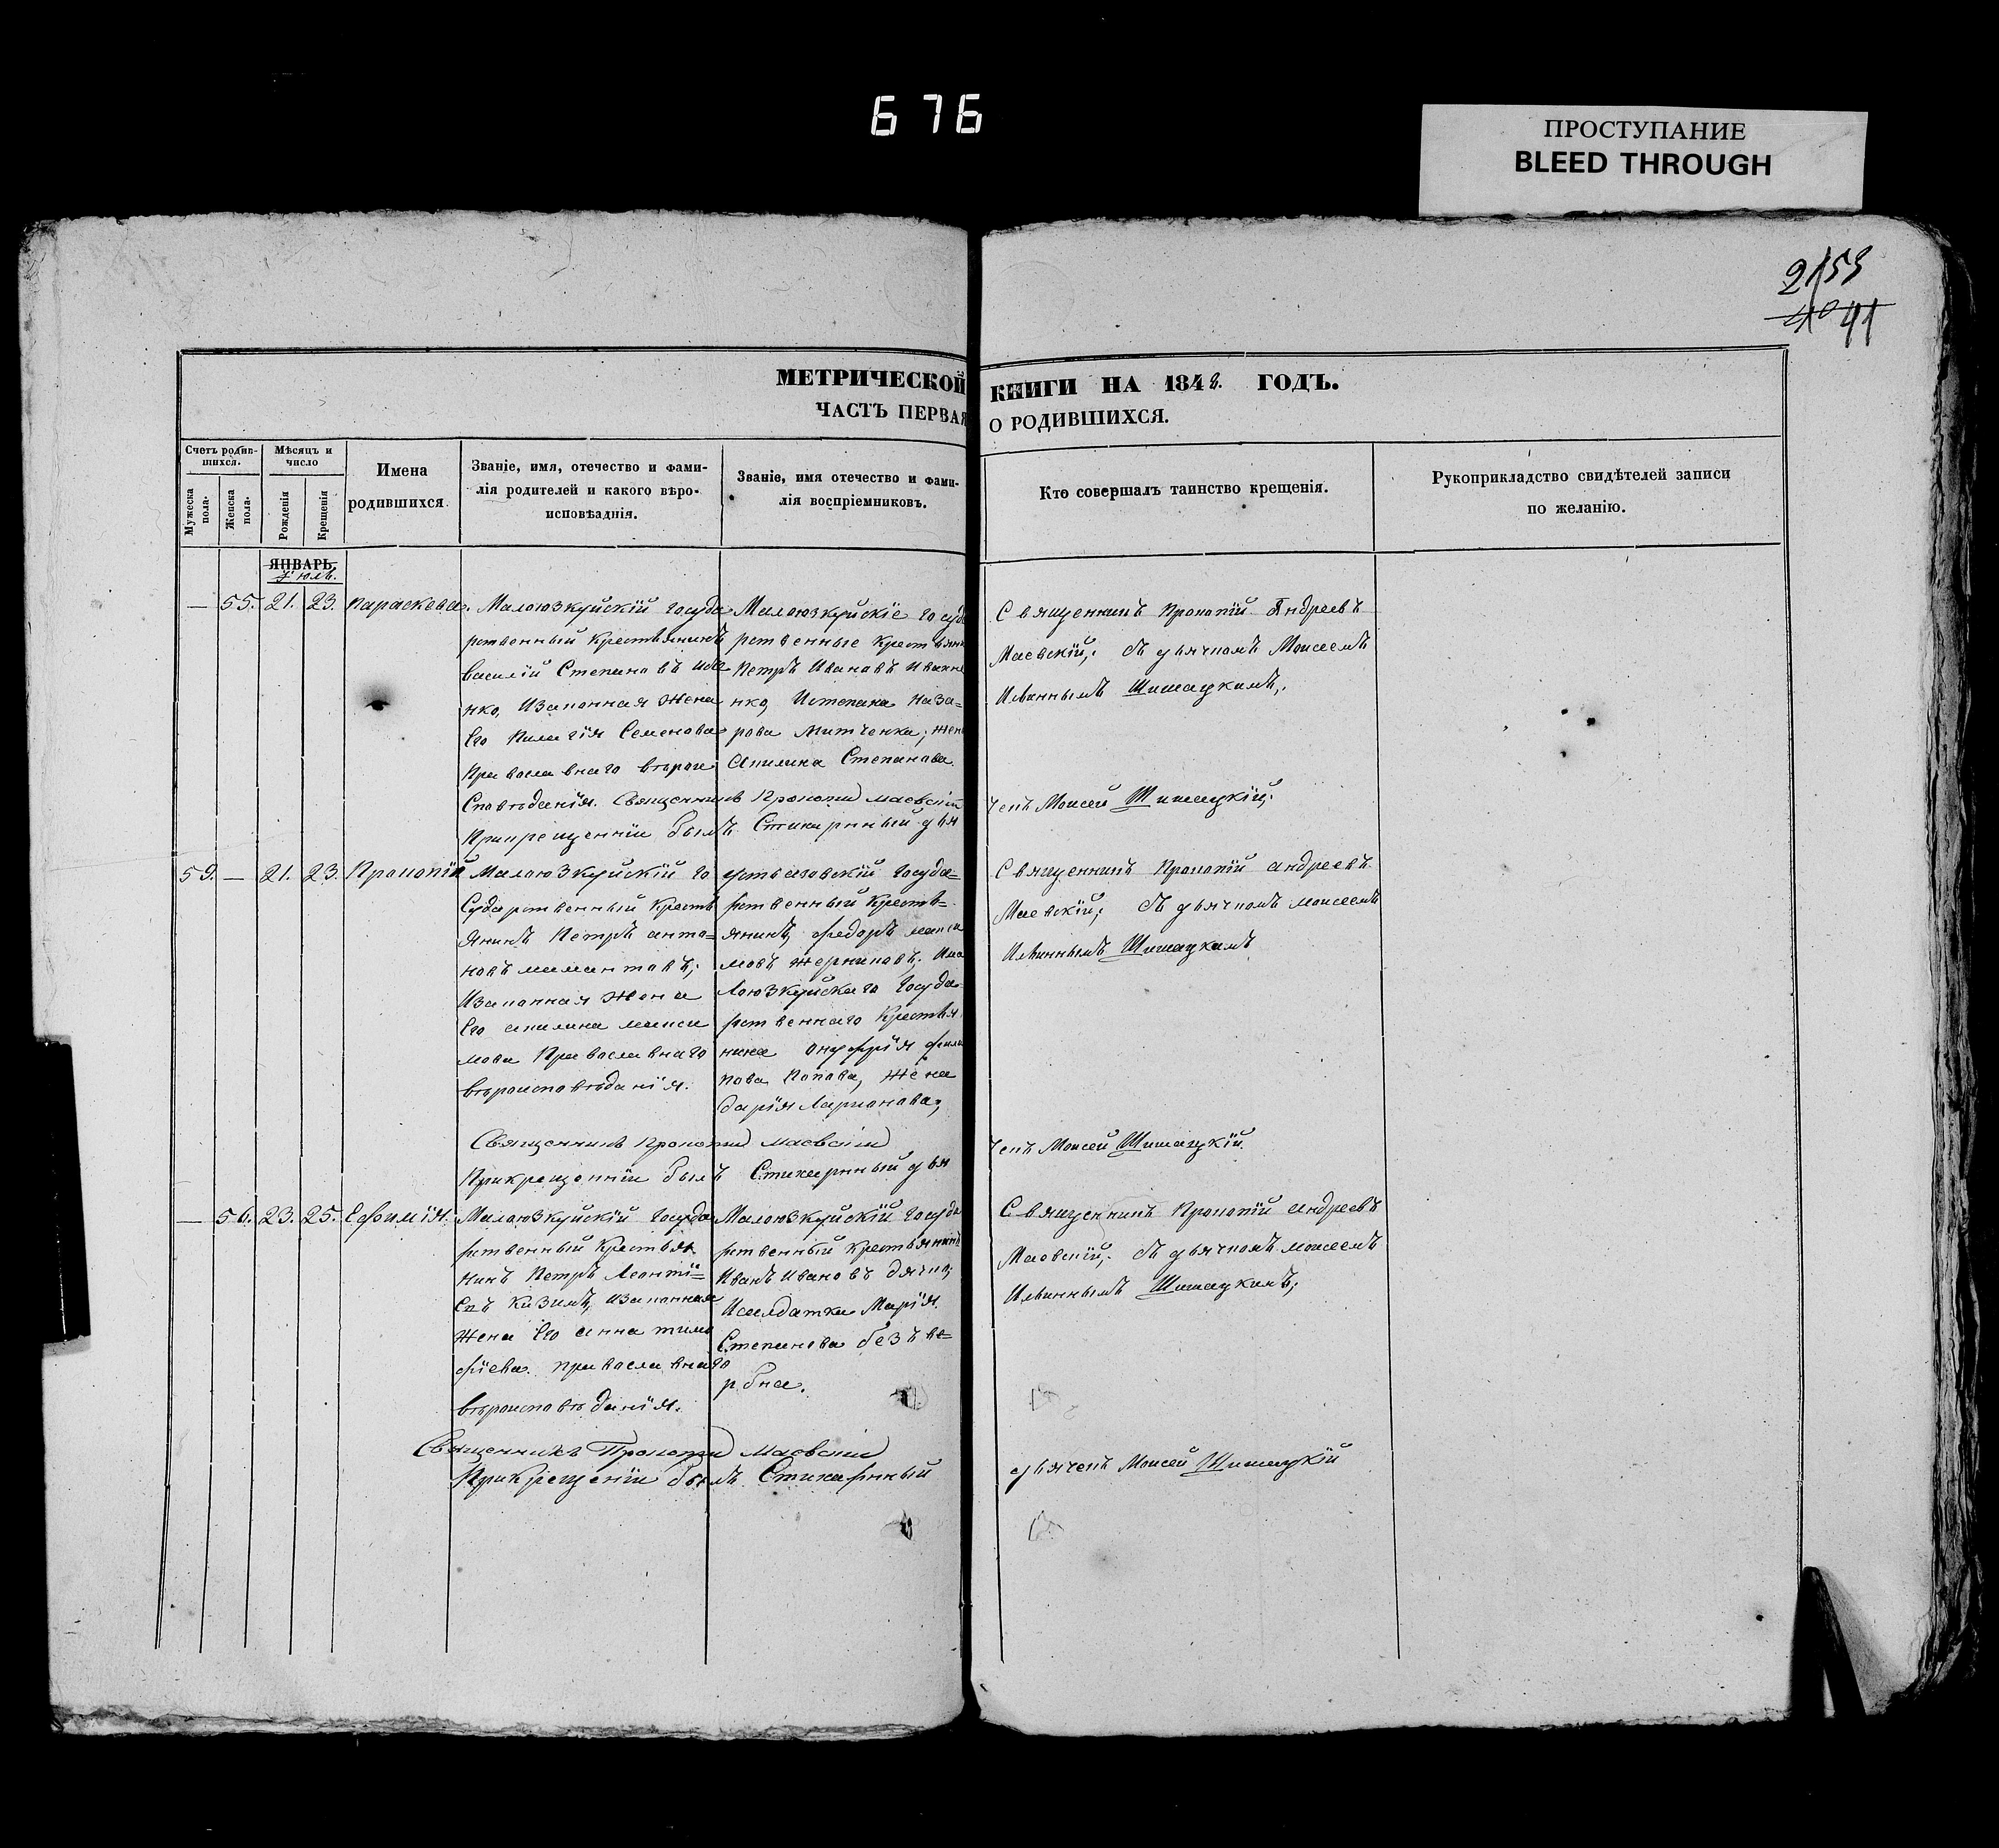 676
ПРОСТУПАНИЕ
BLEED THROUGH
2153
40 41
МЕТРИЧЕСКОЙ КНИГИ НА 1848. ГОДЪ.
ЧАСТЬ ПЕРВАЯ О РОДИВШИХСЯ.
Счетъ родив-
шихся.
Мужеска пола.
Женска пола.
Мѣсяцъ и
число
Рожденія
Крещенія
Имена
родившихся.
Званіе, имя, отечество и фами-
лія родителей и какого вѣро-
исповѣданія.
Званіе, имя отечество и фами-
лія воспріемниковъ.
Кто совершалъ таинство крещенія.
Рукоприкладство свидѣтелей записи
по желанію.
ЯНВАРЬ.
Іюль.
— 55. 21. 23. Параскева.
Малоюзкуйскій госуда
рственный Крестьянинъ
василій Степановъ
нко, Изаконная жена
Его Пилагія Семенова
Православнаго вѣрои
Сповѣданія.
Малоюзкуйскіе госуд
рственные Крестьян
Петръ Ивановъ Ивахне
нко, Истепана Наза=
рова Митченка, жен
Акилина Степанова.
Священникъ Прокопій Андреевъ
Маевскій; съ дьячкомъ Моисеемъ
Ильиннымъ Шишацкимъ;
Священникъ Прокопій Маевскій
Прикрещеніи былъ Стихарный дья
чекъ Моисей Шишацкій;
59. — 21. 23. Прокопій
Малоюзкуйскій го
Сударственный Кресть
янинъ Петръ анто=
новъ мамантовъ;
Изаконная жена
Его акилина макси
мова Православнаго
вѣроисповѣданія.
Государ=
рственный Кресть=
янинъ, федоръ макси
мовъ жерниковъ, Има
Лоюзкуйскаго Госуда
рственнаго Крестья
нина онуфрія фили
пова Попова, жена
дарія Ларионова;
Священникъ Прокопій андреевъ
Маевскій; съ дьячкомъ моисеемъ
Ильиннымъ Шишацкимъ
Священникъ Прокопій Маевскій
Прикрещеніи былъ Стихарный дья
чекъ Моисей Шишацкій.
— 56. 23. 25. Ефимія.
Малоюзкуйскій Госуда
рственный Крестья
нинъ Петръ Леонтіи=
Евъ Кизимъ, Изаконная
жена Его анна тимо
фіева. православнаго
вѣроисповѣданія.
Малоюзкуйскій Госуда
рственный крестьянинъ
Иванъ Ивановъ дячко;
Исалдатка Марія
Степанова безъ ве=
рбна.
Священникъ Прокопій андреевъ
Маевскій; съ дьячкомъ моисеемъ
Ильиннымъ Шишацкимъ;
Священникъ Прокопій Маевскій
Прикрещеніи былъ Стихарный
дьячекъ Моисей Шишацкій